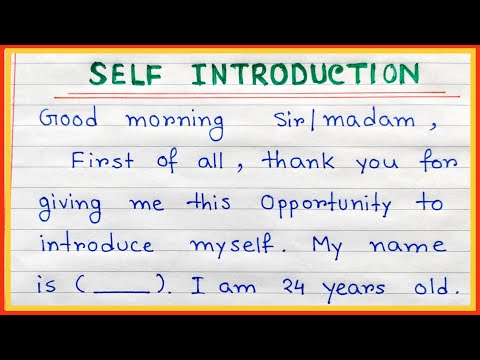 SELF INTRODUCTION
Good morning Sir/madam,
First of all, thank you for
giving me this Opportunity to
introduce myself. My name
is (____). I am 24 years old.